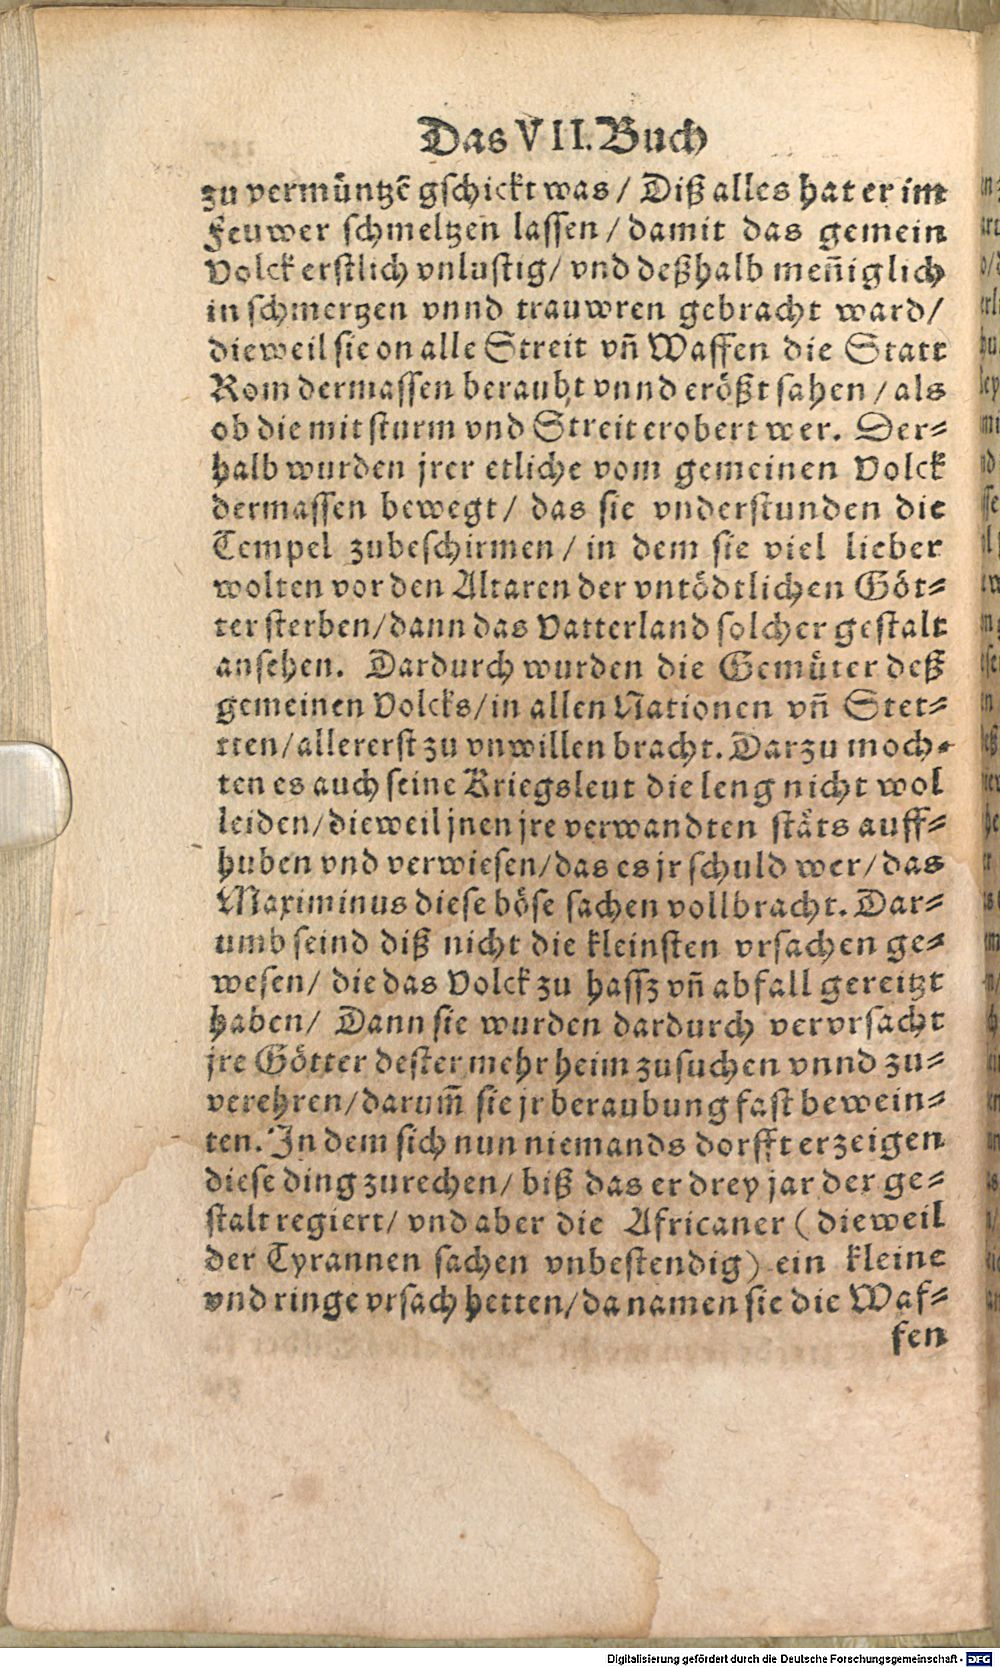 Das VII. Buch
zu vermüntzē gschickt was / Diß alles hat er im
Feuwer schmeltzen lassen / damit das gemein
Volck erstlich vnlustig / vnd deßhalb men̄iglich
in schmertzen vnnd trauwren gebracht ward /
dieweil sie on alle Streit vn̄ Waffen die Statt
Rom dermassen beraubt vnnd erößt sahen / als
ob die mit sturm vnd Streit erobert wer. Der⸗
halb wurden jrer etliche vom gemeinen Volck
dermassen bewegt / das sie vnderstunden die
Tempel zubeschirmen / in dem sie viel lieber
wolten vor den Altaren der vntödtlichen Göt⸗
ter sterben / dann das Vatterland solcher gestalt
ansehen. Dardurch wurden die Gemüter deß
gemeinen Volcks / in allen Nationen vn̄ Stet⸗
tten / allererst zu vnwillen bracht. Darzu moch⸗
ten es auch seine Kriegsleut die leng nicht wol
leiden / dieweil jnen jre verwandten stäts auff⸗
huben vnd verwiesen / das es jr schuld wer / das
Maximinus diese böse sachen vollbracht. Dar⸗
umb seind diß nicht die kleinsten vrsachen ge⸗
wesen / die das Volck zu hassz vn̄ abfall gereitzt
haben / Dann sie wurden dardurch vervrsacht
jre Götter dester mehr heim zusuchen vnnd zu⸗
verehren / darum̄ sie jr beraubung fast bewein⸗
ten. In dem sich nun niemands dorfft erzeigen
diese ding zurechen / biß das er drey jar der ge⸗
stalt regiert / vnd aber die Africaner ( dieweil
der Tyrannen sachen vnbestendig ) ein kleine
vnd ringe vrsach hetten / da namen sie die Waf⸗
fen
Digitalisierung gefördert durch die Deutsche Forschungsgemeinschaft - DFG